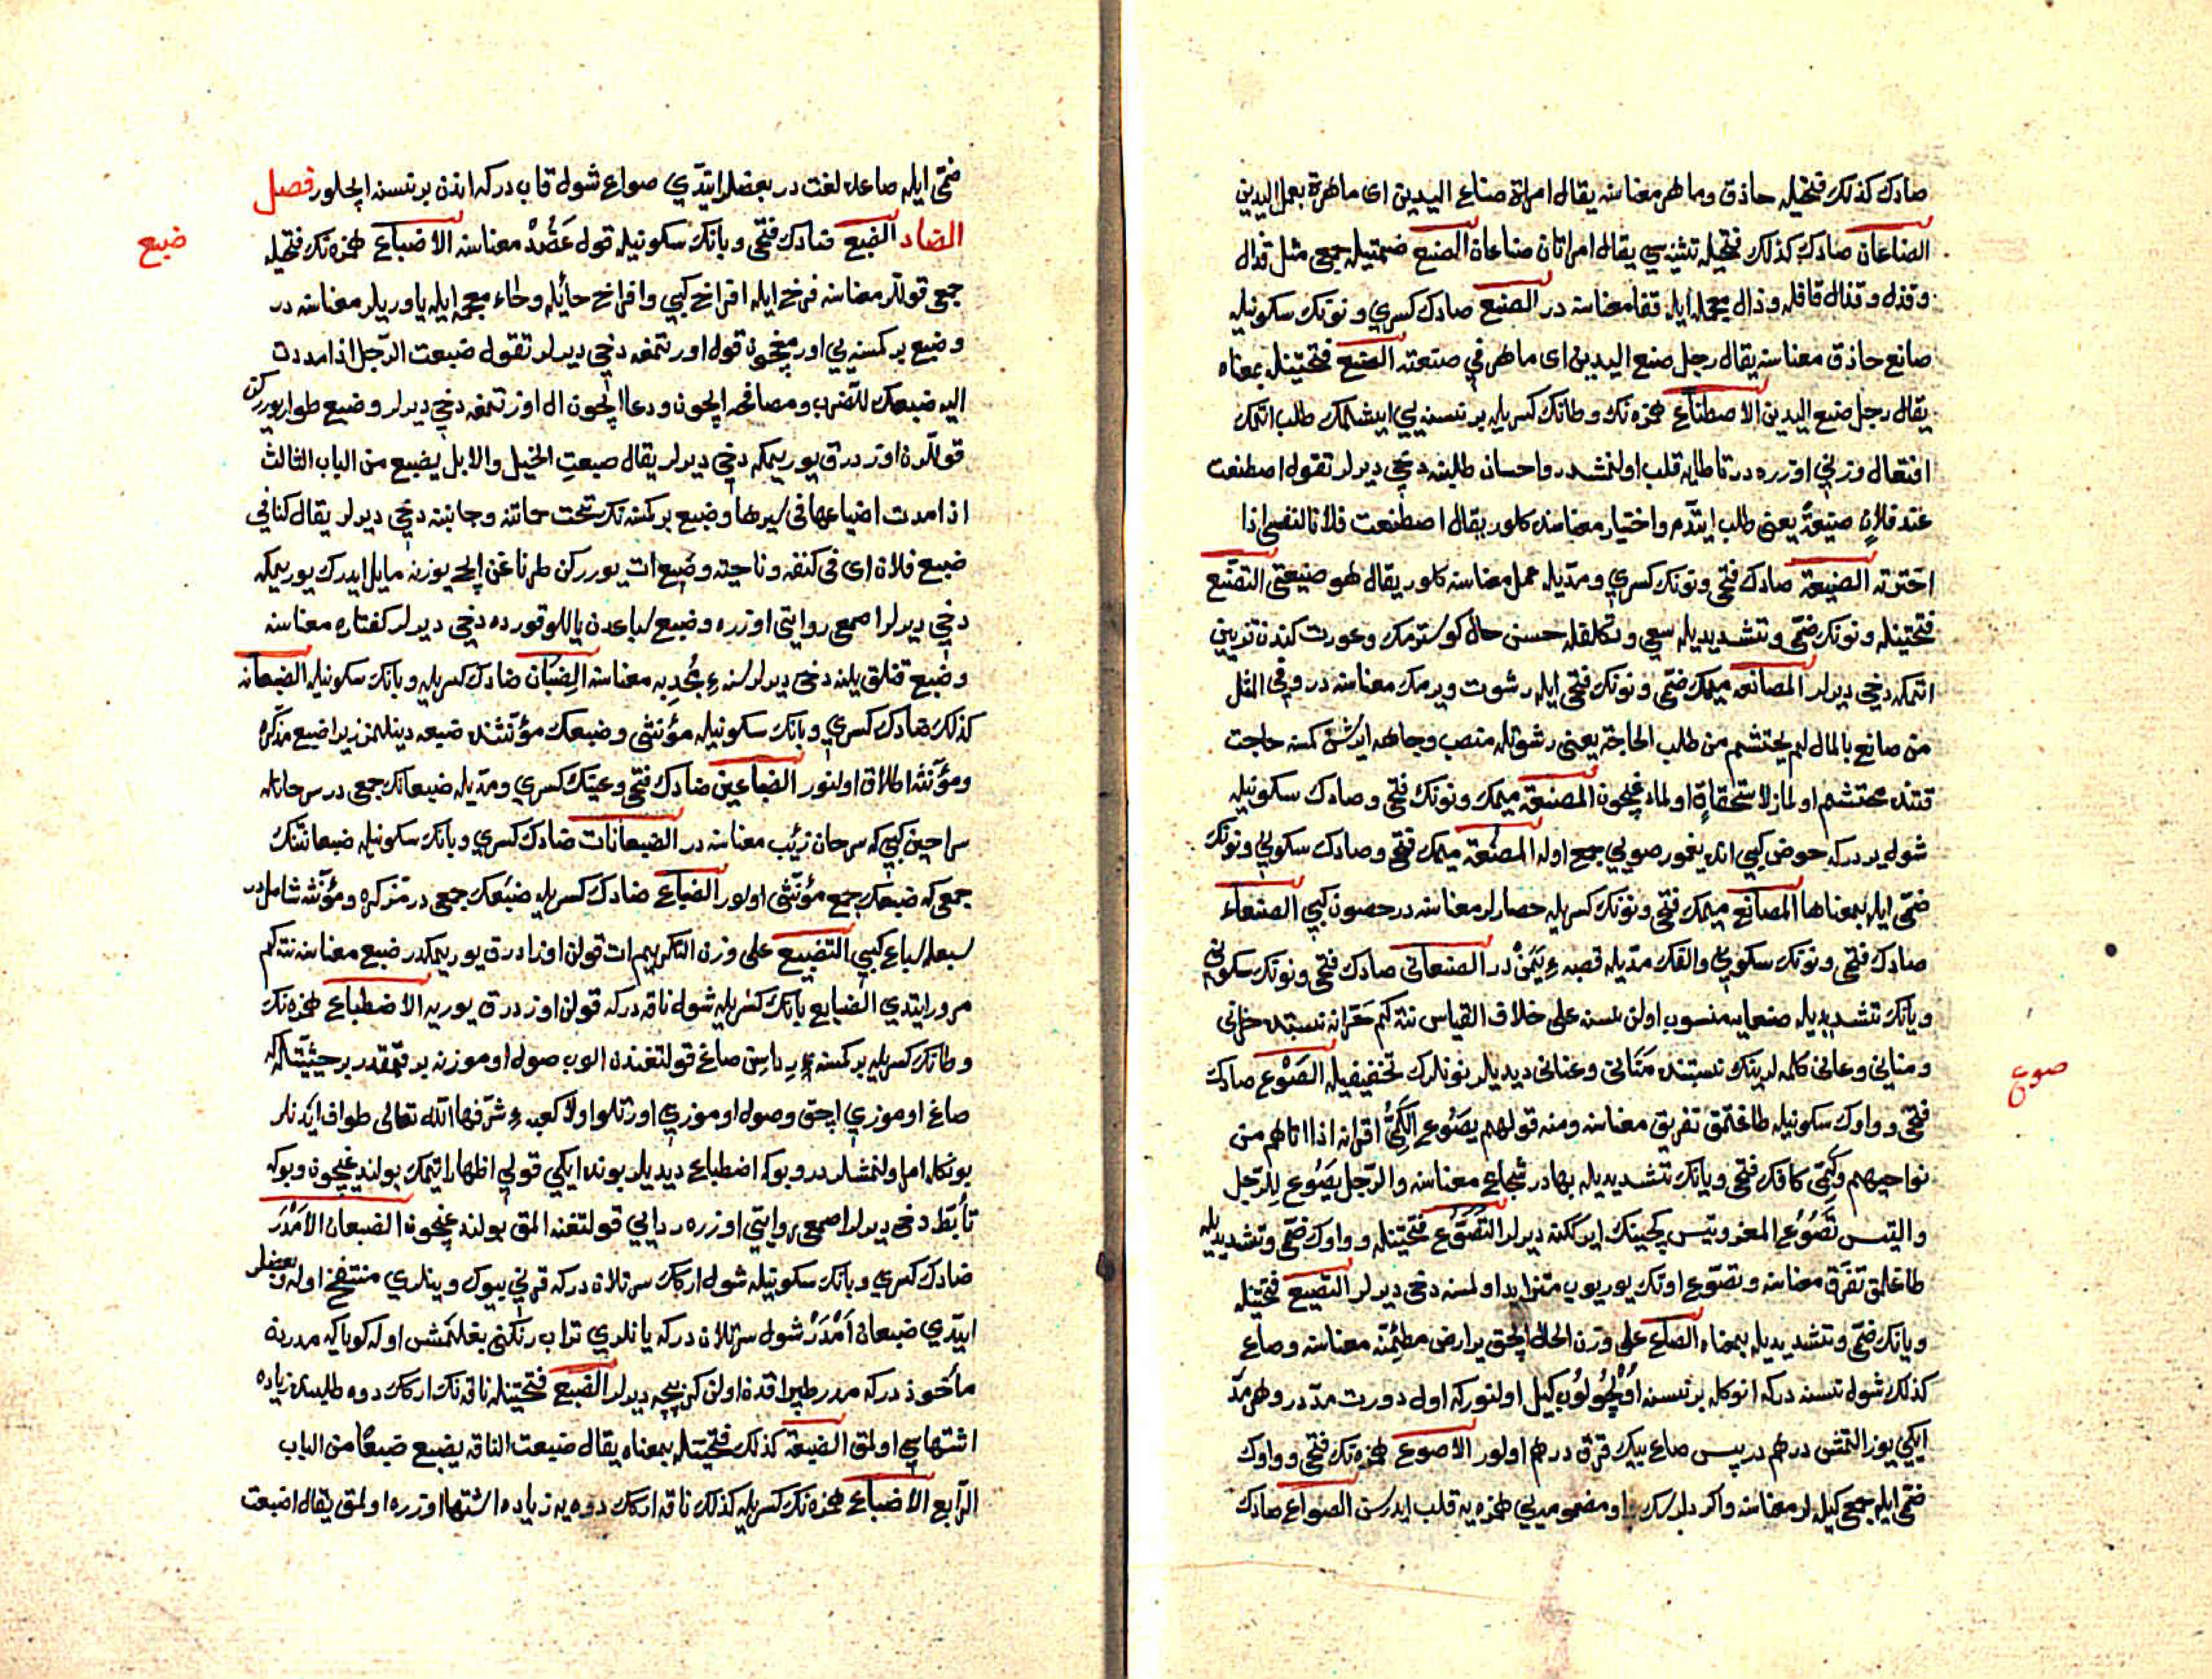 صادك كذلك فتحيله حاذق وماهر معناسنه يقال امراة صناع اليدين اى ماهرة بعمل اليدين
الصناعان صادك كذلك فتحيله تثنيه سي يقال امراتان صناعان الصنع ضمتيله جمعى مثل قذال
وقذل وقذال قافله وذال معجمه ايله قفا معناسنه در الصنع صادك كسرى ونونك سكونيله
صانع حاذق معناسنه يقال رجل صنع اليدين اى ماهر في صنعته الصنع فتحتينله بمعناه
يقال رجل صنع اليدين الاصطناع همزه نك وطانك كسريله بر نسنه يي ايشلمك طلب اتمك
افتعال وزني اوزره در تا طايه قلب اولنمشدر واحسان طلبنه دخي ديرلر تقول اصطنعت
عند فلان صنيعةً يعنى طلب ايتدم واختيار معناسنه كلور يقال اصطنعت فلانا لنفسى اذا
اخترته الصنيعة صادك فتحى ونونك كسرى ومديله عمل معناسنه كلور يقال هو صنيعتى التصنع
فتحتينله ونونك ضمى وتشديديله سعي وتكلفله حسن حال كوسترمك وعورت كندن تزيين
اتمكه دخي ديرلر المصانعه ميمك ضمى ونونك فتحى ايله رشوت ويرمك معناسنه در وفى المثل
من صانع بالمال لم يحتشم من طلب الحاجة يعنى رشوتله منصب وجاهه ايرشن كمسنه حاجت
قتنده محتشم اولماز لاستحقاق اولمادغيچون المصنعة ميمك ونونك فتحى وصادك سكونيله
شول يردركه حوض كبي انده يغمور صويي جمع اولور المصنعة ميمك فتحى وصادك سكونى ونونك
ضمى ايله بمعناها المصانع ميمك فتحى ونونك كسريله حصارلر معناسنه در حصون كبي الصنعاء
صادك فتحى ونونك سكونى والفك مديله قصبهء يَمَنْ در الصنعانى صادك فتحى ونونك سكونى
ويانك تشديديله صنعايه منسوب اولن نسنه على خلاف القياس نته كم حرانه نسبتده حرنانى
ومناني وعاني كلمه لرينك نسبتنده مَنّانى وعنانى ديديلر نونلرك تخفيفيله الصَوْع صادك
فتحى وواوك سكونيله طاغتمق تفريق معناسنه ومنه قولهم يصَوُع الكَمِيُّ اقرانه اذا اتاهم من
نواحيهم وكَمِيّ كافك فتحى ويانك تشديديله بهادر شجاع معناسنه والرّجل يَصُوع للرّجل
والتيس تَصُوع المعز وتيس كچينك ارككنه ديرلر التصَوُّع فتحتينله وواوك ضمى وتشديديله
طاغلمق تفرّق معناسنه وتصوّع اوتك يوريوب متزايد اولمسنه دخى ديرلر التصيع فتحتينله
ويانك ضمى وتشديديله بمعناه الصاع على وزن الحال الچق ير ارض مطمئنه معناسنه وصاع
كذلك شول نسنه دركه انوكله بر نسنه اوُلچُولوُب كيل اولنوركه اول دورت مدّ در وهر مدّ
ايكي يوز التمش درهم در پس صاع بيك قرق درهم اولور الاصوع همزه نك فتحى وواوك
ضمى ايله جمعى كيللر معناسنه واكر ديلرسك او مضموميني همزه يه قلب ايدرسن الصواع صادك
صوع
ضمى ايله صاعده لغت در بعضلر ايتدى صواع شول قاب دركه اندن بر نسنه ايچلور فصل
الضاد الضبع ضادك فتحى وبانك سكونيله قول عَضُدْ معناسنه الاضباع همزه نك فتحيله
ضبع
جمعى قوللر معناسنه فرخ ايله افراخ كبي وافراخ حائله وخاء معجمه ايله ياوريلر معناسنه در
وضبع بر كمسنه يي اورمغيچون قول اورتمغه دخي ديرلر تقول ضبعت الرّجل اذا مددت
اليه ضبعك للضرب ومصافحه ايچون ودعا ايچون ال اوزتمغه دخي ديرلر وضبع طوار يوركن
قوللرن اوزدرق يوريمكه دخي ديرلر يقال ضبعت الخيل والابل يضبع من الباب الثالث
اذا مدت اضباعها فى سيرها وضبع بر كمسنه نك تحت حمايتنه وجانبنه دخي ديرلر يقال كنا في
ضبع فلان اى فى كنفه وناحيته وضبع ات يوررركن طرناغن ايچ يوزنه مايل ايدرك يوريمكه
دخي ديرلر اصمعى روايتى اوزره وضبع سباعدن يالو قورده دخي ديرلر كفتاره معناسنه
وضبع قتلق يلنه دخى ديرلر سنهء مُجْدِبه معناسنه الضِبْعان ضادك كسريله وبانك سكونيله الضبعانه
كذلك ضادك كسرى وبانك سكونيله مؤنثى وضبعك مؤنثنده ضبعه دينلمز زيرا ضبع مذكره
ومؤنثه اطلاق اولنور الضباعين ضادك فتحى وعينك كسرى ومديله ضبعانك جمعى در سرحانله
سراحين كبي كه سرحان ذئب معناسنه در الضبعانات ضادك كسرى وبانك سكونيله ضبعانتنك
جمعى كه ضبعك جمع مؤنثى اولور الضباع ضادك كسريله ضبعك جمعى در مذكره ومؤنثه شاملدر
سبعله سباع كبي التضبيع على وزن التكريم ات قولن اوزادرق يوريمكدر ضبع معناسنه نته كم
مرور ايتدى الضابع بانك كسريله شول ناقه دركه قولن اوزدرق يوريه الاضطباع همزه نك
وطانك كسريله بر كمسنه رداسن صاغ قولتغندن الوب صول اوموزنه برقمقدر بر حيثيتله كه
صاغ اوموزي اچق وصول اوموزي اورتلو اولا كعبهء شرّفها الله تعالى طواف ايدنلر
بونكله امر اولنمشلردر وبوكه اضطباع ديديلر بونده ايكي قولي اظهار ايتمك بولندغيچون وبوكه
تأبّط دخى ديرلر اصمعى روايتى اوزره ردايي قولتغنه المق بولندغيچون الضبعان الامْدَر
ضادك كسرى وبانك سكونيله شول اركك سرتلان دركه قرنى بيوك ويانلرى منتفخ اوله وبعضلر
ايتدي ضبعان اَمْدَرْ شول سرتلان دركه يانلري تراب رنكنى بغلمش اوله كويا كه مدردن
مأخوذ دركه مدر طپراقدن اولن كرپيچه ديرلر الضبع فتحتينله ناقه نك اركك دوه طلبنده زياده
اشتهاسي اولمق الضبعة كذلك فتحتينله بمعناه يقال ضبعت الناقه يضبع ضبعًا من الباب
الرّابع الاضباع همزه نك كسريله كذلك ناقه اركك دوه يه زياده اشتها اوزره اولمق يقال اضبعت